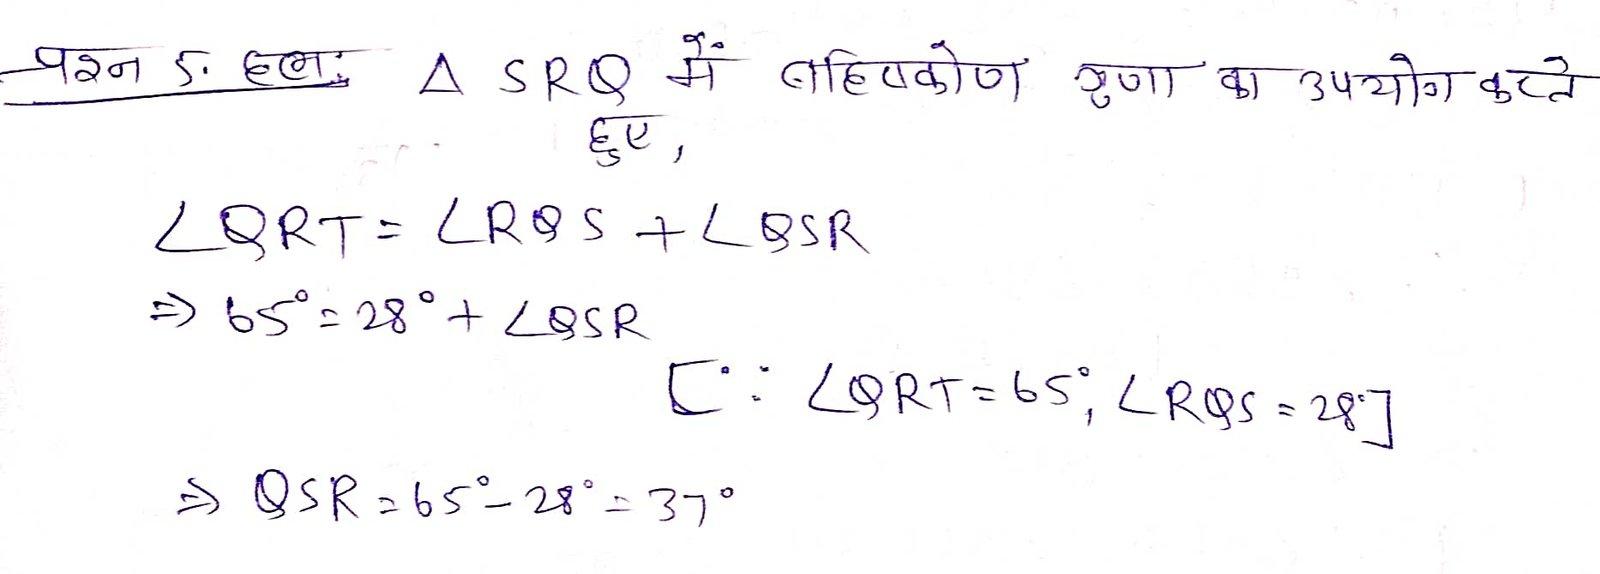 प्रश्न 5. हल: Δ SRQ में बहिष्कोण गुण का उपयोग करते
हुए,
∠QRT = ∠RQS + ∠QSR
⇒ 65° = 28° + ∠QSR
[∵ ∠QRT = 65°, ∠RQS = 28°]
⇒ QSR = 65° - 28° = 37°